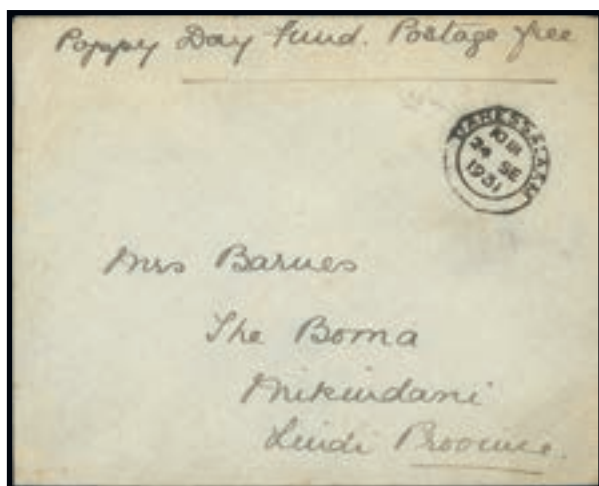 Poppy Day Fund. Postage free
DAR ES SALAAM
24 SE
1931
Mrs Barnes
The Boma
Mikindani
Lindi Province.